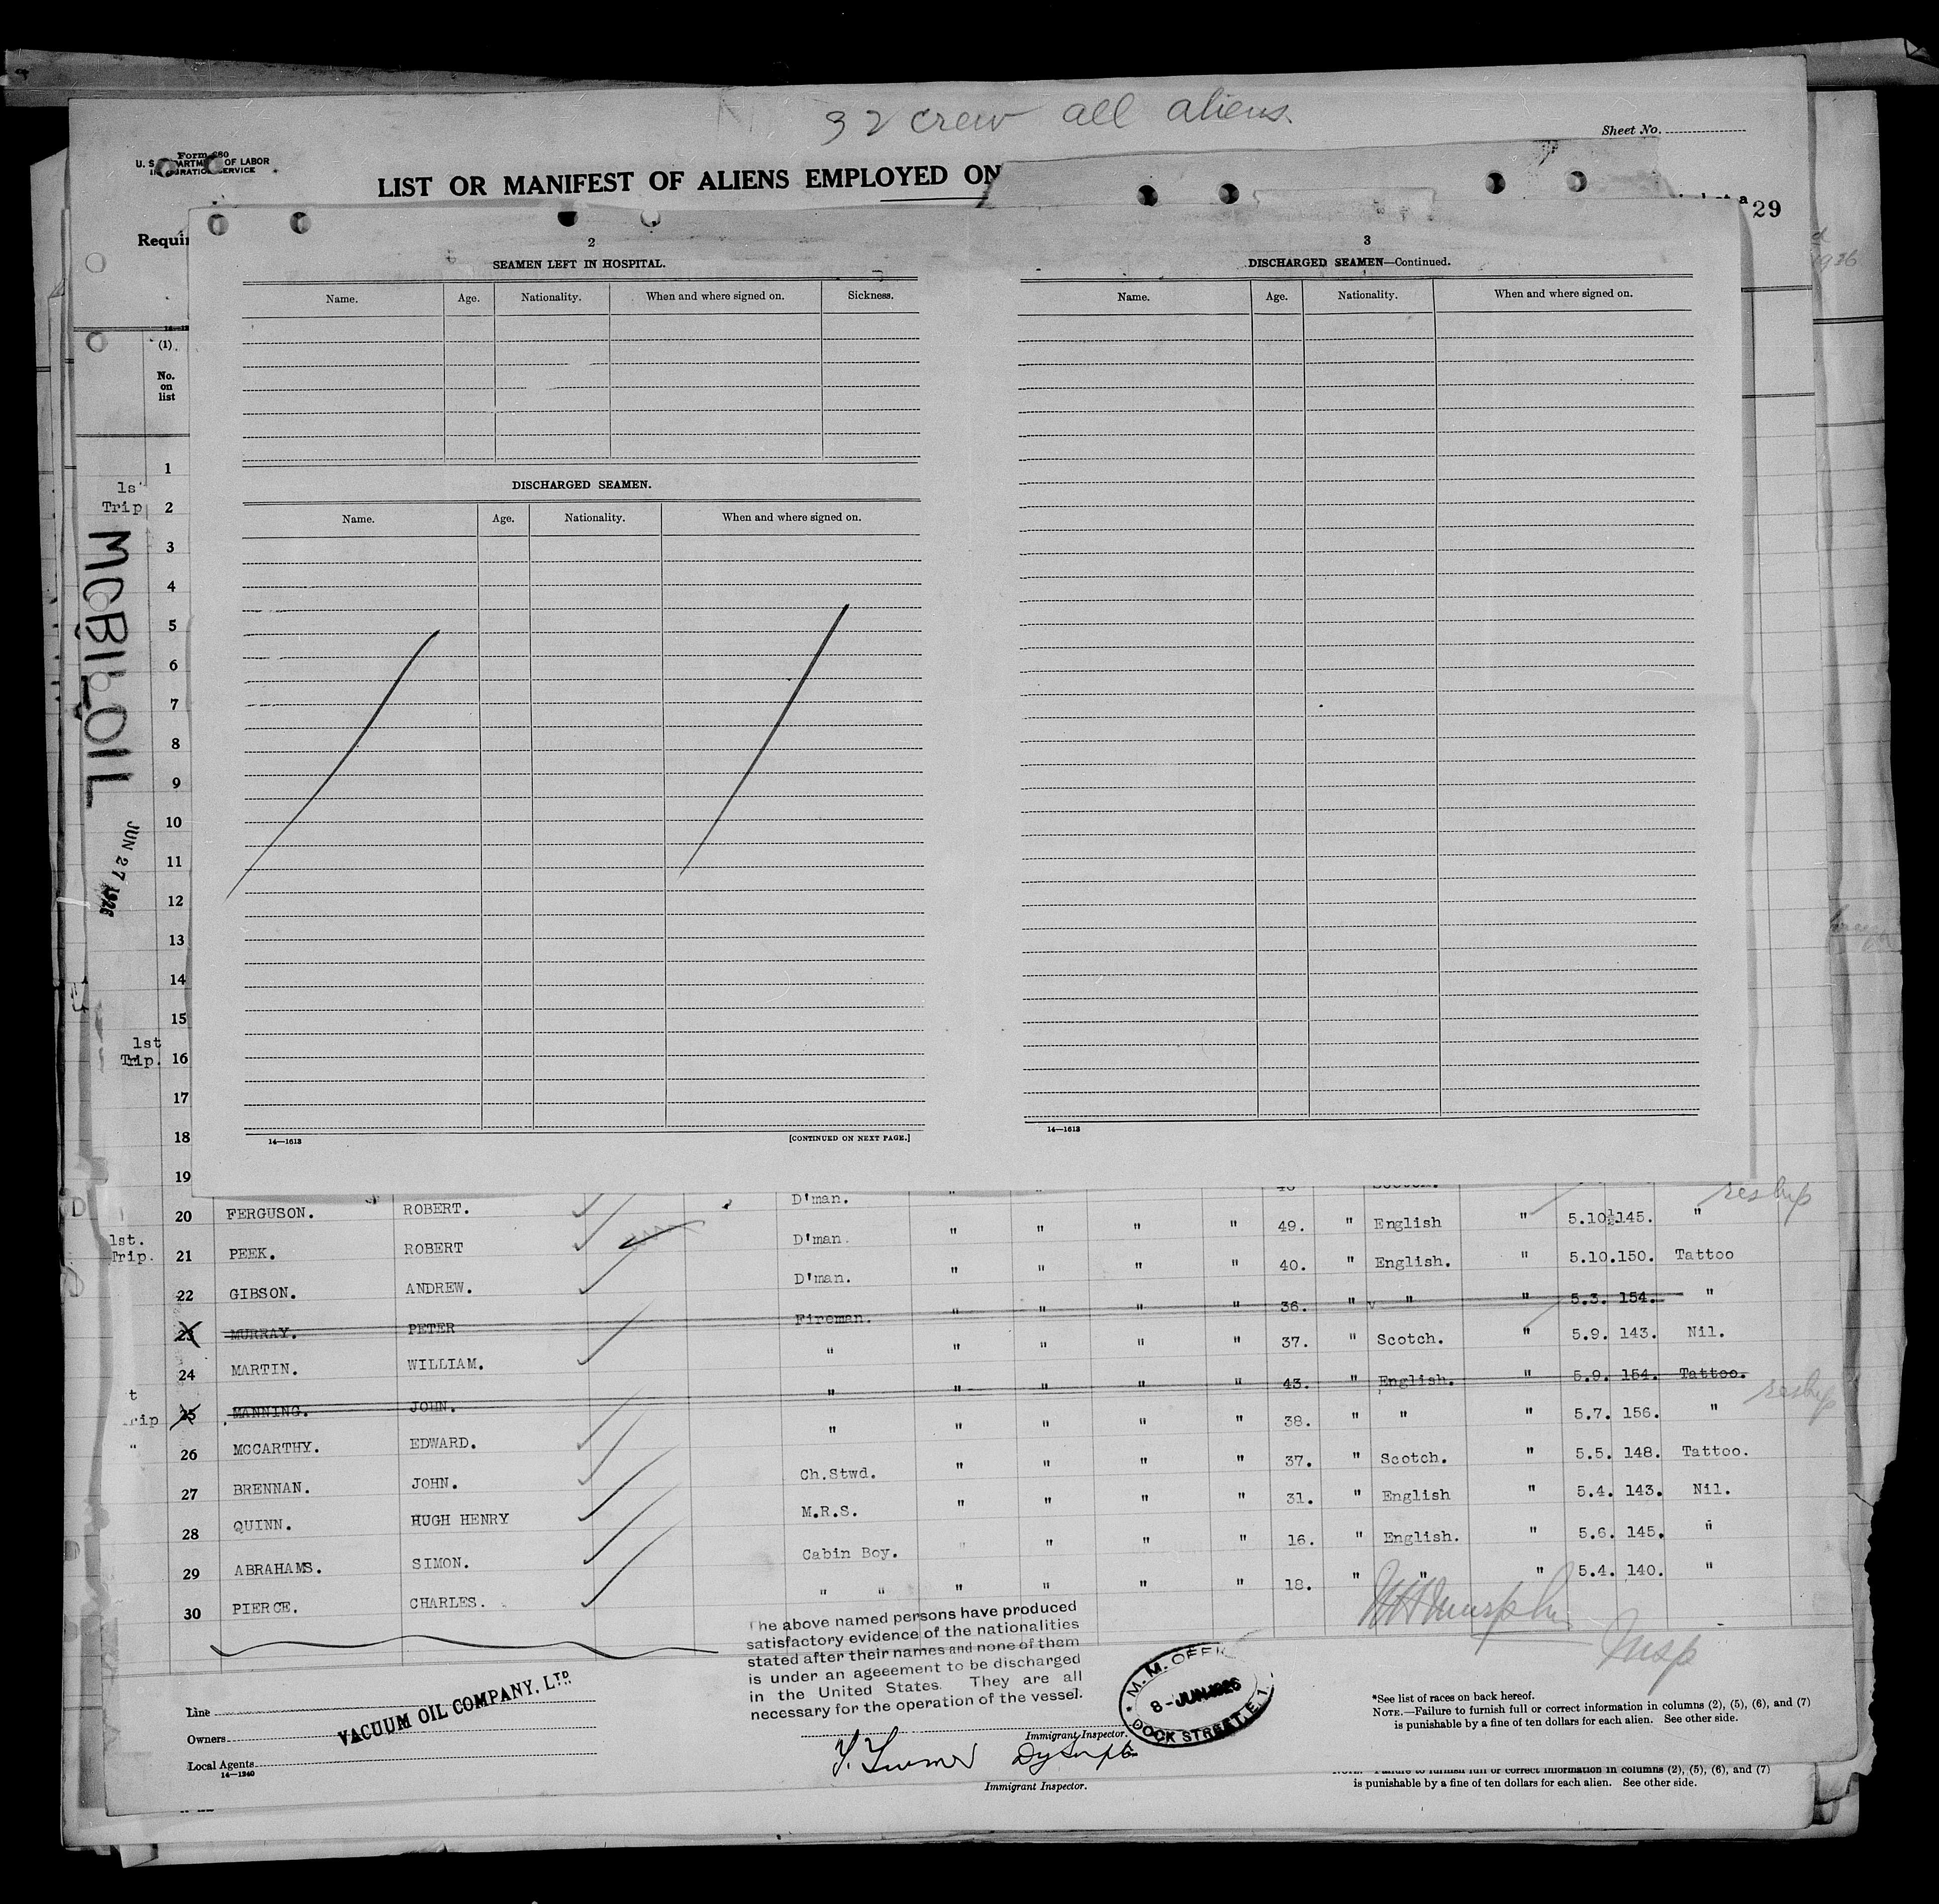 32 crew all aliens.
Sheet No.
Form 680
U. S. DEPARTMENT OF LABOR
IMMIGRATION SERVICE
LIST OR MANIFEST OF ALIENS EMPLOYED ON
29
Requi
2
SEAMEN LEFT IN HOSPITAL.
Name. Age. Nationality. When and where signed on. Sickness.
DISCHARGED SEAMEN.
Name. Age. Nationality. When and where signed on.
14—1613 [CONTINUED ON NEXT PAGE.]
3
DISCHARGED SEAMEN—Continued.
Name. Age. Nationality. When and where signed on.
14—1613
(1)
No.
on
list
1
2
3
4
5
6
7
8
9
10
11
12
13
14
15
16
17
18
19
Trip
MOBILOIL
JUN 27 1926
1st
Trip.
20 FERGUSON. ROBERT. D'man. " " " " 49. " English " 5.10½. 145. "
1st.
Trip.
21 PEEK. ROBERT D'man. " " " " 40. " English. " 5.10. 150. Tattoo
22 GIBSON. ANDREW. D'man. " " " " 36. " " " 5.3. 154. "
23 MURRAY. PETER Fireman. " " " " 37. " Scotch. " 5.9. 143. Nil.
24 MARTIN. WILLIAM. " " " " " 43. " English. " 5.9. 154. Tattoo.
25 MANNING. JOHN. " " " " " 38. " " " 5.7. 156. "
26 MCCARTHY. EDWARD. " " " " " 37. " Scotch. " 5.5. 148. Tattoo.
27 BRENNAN. JOHN. Ch.Stwd. " " " " 31. " English " 5.4. 143. Nil.
28 QUINN. HUGH HENRY M.R.S. " " " " 16. " English. " 5.6. 145. "
29 ABRAHAMS. SIMON. Cabin Boy. " " " " 18. " " " 5.4. 140. "
30 PIERCE. CHARLES. " "
reship
reship
The above named persons have produced
satisfactory evidence of the nationalities
stated after their names and none of them
is under an ageeement to be discharged
in the United States. They are all
necessary for the operation of the vessel.
Insp
Line
Owners
Local Agents
14—1240
VACUUM OIL COMPANY. LTD
Immigrant Inspector.
Immigrant Inspector.
M. M. OFFI
8 - JUN 1926
DOCK STREET, E.1.
*See list of races on back hereof.
NOTE.—Failure to furnish full or correct information in columns (2), (5), (6), and (7)
is punishable by a fine of ten dollars for each alien. See other side.
NOTE.—Failure to furnish full or correct information in columns (2), (5), (6), and (7)
is punishable by a fine of ten dollars for each alien. See other side.